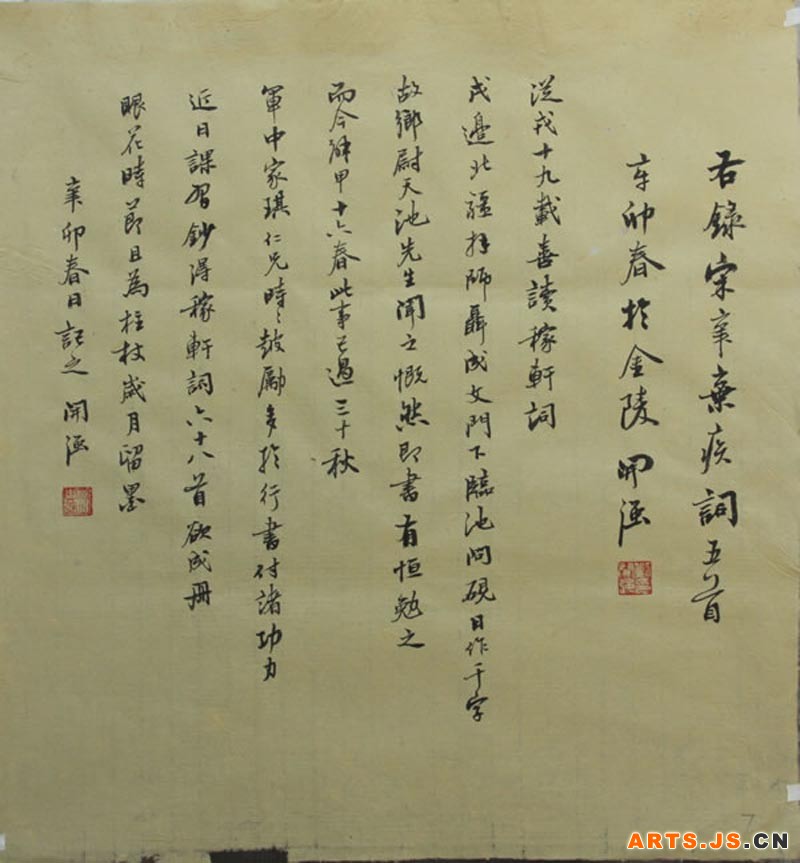 右錄宋辛棄疾詞五首
辛卯春於金陵 開
從戎十九載喜讀稼軒詞
戍邊北疆拜師聶成文門下臨池問硯日作千字
故鄉尉天池先生聞之慨然即書有恒勉之
而今解甲十六春此事已過三十秋
軍中家琪仁兄時時鼓勵多於行書付諸功力
近日課習鈔得稼軒詞六十八首欲成冊
眼花時節且為柱杖歲月留墨
辛卯春日記之 開
7
ARTS.JS.CN